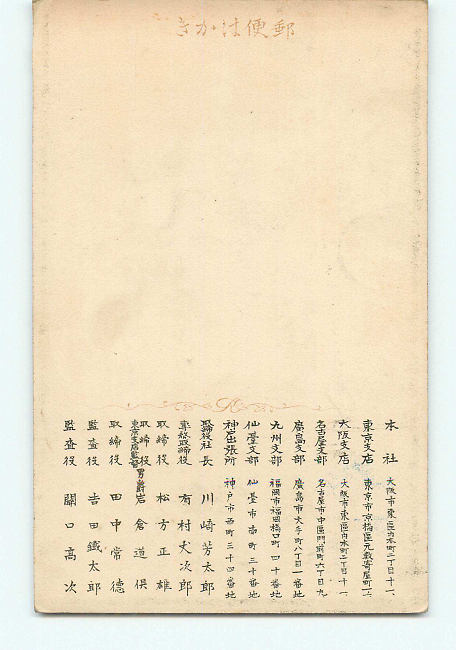 郵便はかき
本社 大阪市東區内本町二丁目十一
東京支店 東京市京橋區元數寄屋町一ノ一
大阪支店 大阪市東區内本町二丁目十一
名古屋支部 名古屋市中區門前町六丁目九
廣島支部 廣島市大手町八丁目一番地
九州支部 福岡市福岡橋口町四十番地
仙臺支部 仙臺市南町三十番地
神戸出張所 神戸市西町三十四番地
取締役社長 川崎芳太郎
專務取締役 有村丈次郎
取締役 松方正雄
取締役 東京支店監督 男爵 岩倉道倶
取締役 田中常德
監査役 吉田鐵太郎
監査役 關口高次